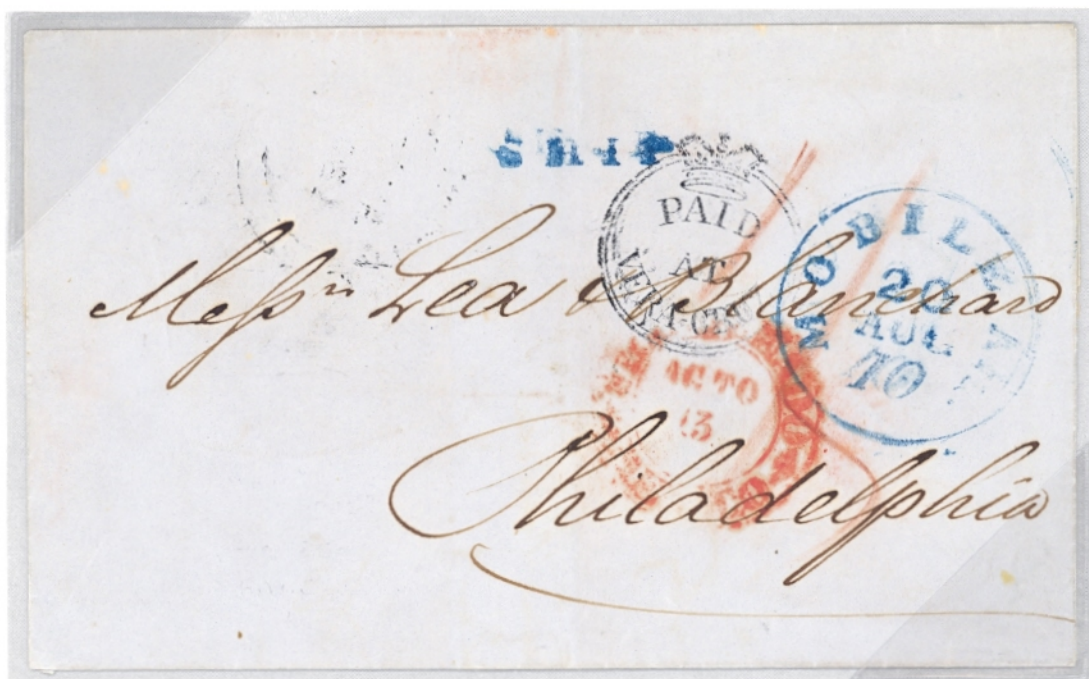 Ship
PAID
AT
VERA-CRUZ
MOBILE
20
AUG
10
AGTO
13
Messrs Lea & Blanchard
Philadelphia